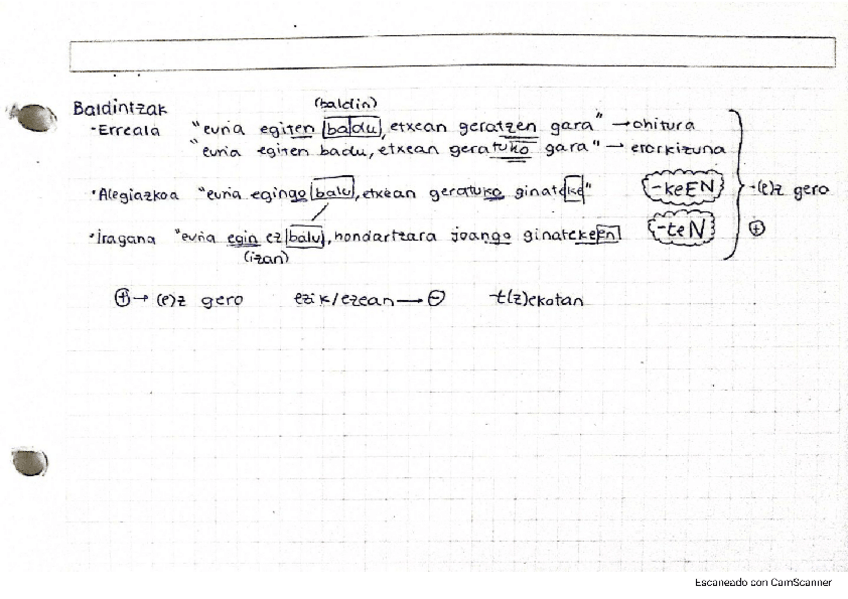 Baldintzak (baldin)
·Erreala "euria egiten badu, etxean geratzen gara" → ohitura
"euria egiten badu, etxean geratuko gara" → etorkizuna
·Alegiazkoa "euria egingo balu, etxean geratuko ginateke" -keEN -(e)z gero
·Iragana "euria egin ez balu, hondartzara joango ginatekeen -teN +
(izan)
+ → (e)z gero ezik/ezean → - t(z)ekotan
Escaneado con CamScanner